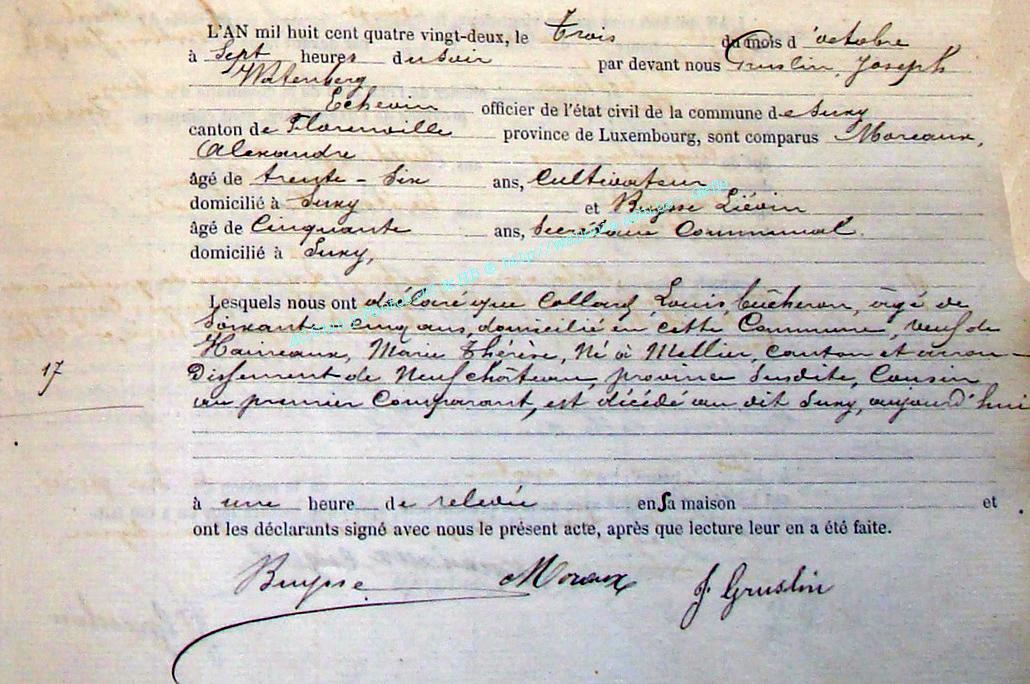 L'AN mil huit cent quatre vingt-deux, le trois du mois d'octobre
à Sept heures du Soir par devant nous Gruslin, Joseph
Watenberg
Echevin officier de l'état civil de la commune de Suxy
canton de Florenville province de Luxembourg, sont comparus Moreaux,
Alexandre
âgé de trente-Six ans, Cultivateur
domicilié à Suxy et Buysse Liévin
âgé de Cinquante ans, Secrétaire Communal.
domicilié à Suxy,
Lesquels nous ont déclaré que Collard, Louis, bûcheron, âgé de
Soixante-cinq ans, domicilié en cette Commune, veuf de
Haineaux, Marie Thérèse, Né à Mellier, canton et arron-
dissement de Neufchâteau, province Susdite, Cousin
17
au premier Comparant, est décédé au dit Suxy, aujourd'hui
à une heure de relevée en Sa maison et
ont les déclarants signé avec nous le présent acte, après que lecture leur en a été faite.
Buysse Moreaux J. Gruslin